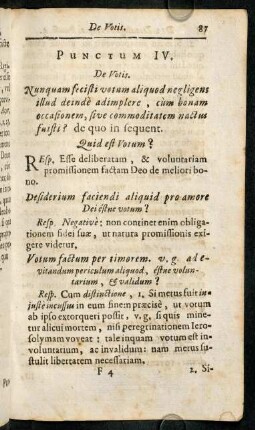 De Votis. 87
PUNCTUM IV.
De Votis.
Nunquam fecisti votum aliquod negligens
illud deindè adimplere, cùm bonam
occasionem, sive commoditatem nactus
fuisti? de quo in sequent.
Quid est Votum?
REsp. Esse deliberatam, & voluntariam
promissionem factam Deo de meliori bo-
no.
Desiderium faciendi aliquid pro amore
Dei éstne votum?
Resp. Negativè: non continet enim obliga-
tionem fidei suæ, ut natura promissionis exi-
gere videtur.
Votum factum per timorem. v. g. ad e-
vitandum periculum aliquod, éstne volun-
tarium, & validum?
Resp. Cum distinctione, 1. Si metus fuit in-
justè incussus in eum finem præcisè, ut votum
ab ipso extorqueri possit, v. g. si quis mine-
tur alicui mortem, nisi peregrinationem Iero-
solymam voveat: tale inquam votum est in-
voluntarium, ac invalidum: nam metus su-
stulit libertatem necessariam.
F 4
2. Si-